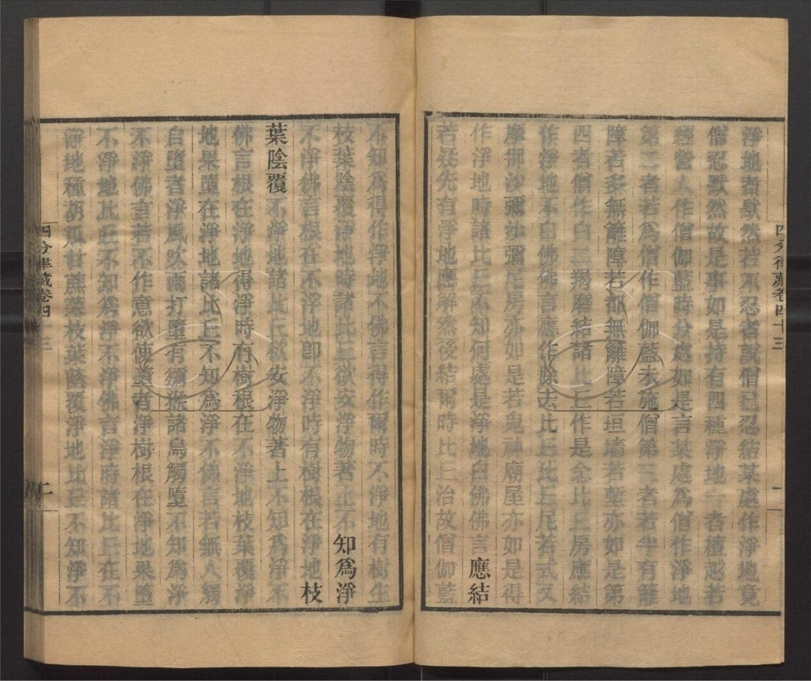 淨地者默然若不忍者說僧已忍結某處作淨地竟
僧忍默然故是事如是持有四種淨地一者檀越若
經營人作僧伽藍時分處如是言某處為僧作淨地
第二者若為僧作僧伽藍未施僧第三者若半有籬
障若多無籬障若都無籬障若垣墻若塹亦如是第
四者僧作白二羯磨結諸比丘作是念比丘房應結
作淨地不白佛佛言應作除去比丘比丘尼若式叉
摩那沙彌沙彌尼房亦如是若鬼神廟屋亦如是得
作淨地時諸比丘不知何處是淨地白佛佛言應結
若疑先有淨地應解然後結爾時比丘治故僧伽藍
四分律藏卷四十三
一
不知為得作淨地不佛言得作爾時不淨地有樹生
枝葉陰覆淨地時諸比丘欲安淨物著上不知為淨
不淨佛言根在不淨地即不淨時有樹根在淨地枝
葉陰覆不淨地諸比丘欲安淨物著上不知為淨不
佛言根在淨地得淨時有樹根在不淨地枝葉覆淨
地果墮在淨地諸比丘不知為淨不佛言若無人觸
自墮者淨風吹雨打墮有獼猴諸鳥觸墮不知為淨
不淨佛言若不作意欲使墮者淨樹根在淨地果墮
不淨地比丘不知為淨不淨佛言淨時諸比丘在不
淨地種胡瓜甘蔗菜枝葉蔭覆淨地比丘不知淨不
四分律藏卷四
三
二